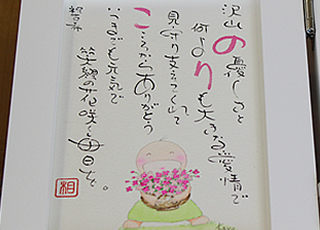 沢山の優しさと
何よりも大きな愛情で
見守り支えてくれて
こころからありがとう
いつまでも元気で
笑顔の花咲く毎日を。